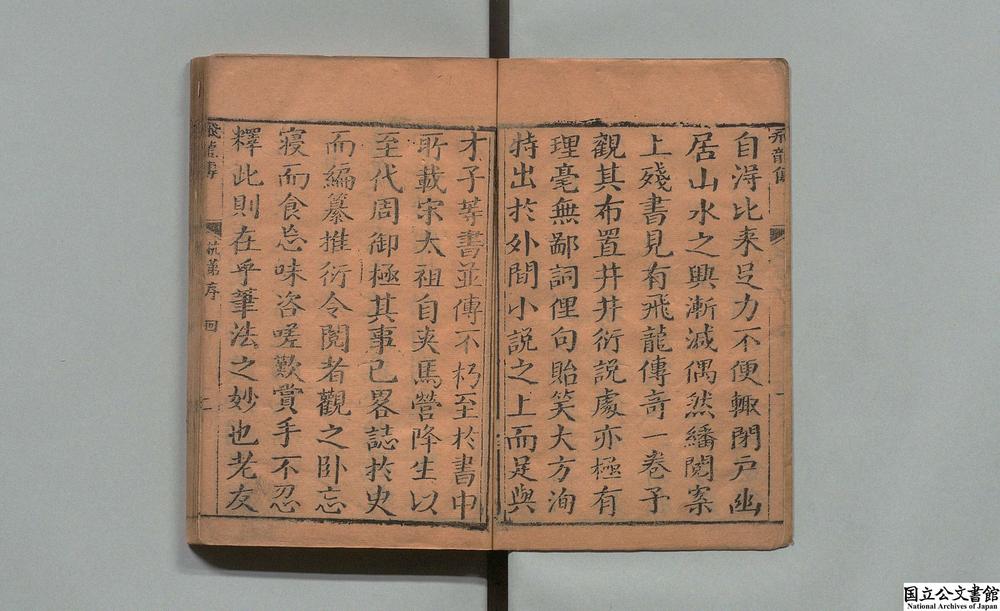 飛龍傳
自淂比来足力不便輙閉戸幽
居山水之興漸減偶然繙閱案
上殘書見有飛龍傳奇一卷予
觀其布置井井衍說處亦極有
理毫無鄙詞俚句貽笑大方洵
特出扵外間小說之上而足與
才子等書並傳不朽至扵書中
所載宋太祖自夾馬營降生以
至代周御極其事已畧誌扵史
而編纂推衍令閱者觀之卧忘
寢而食忘味咨嗟歎賞手不忍
釋此則在乎筆法之妙也老友
飛龍傳
序
回
国立公文書館
National Archives of Japan